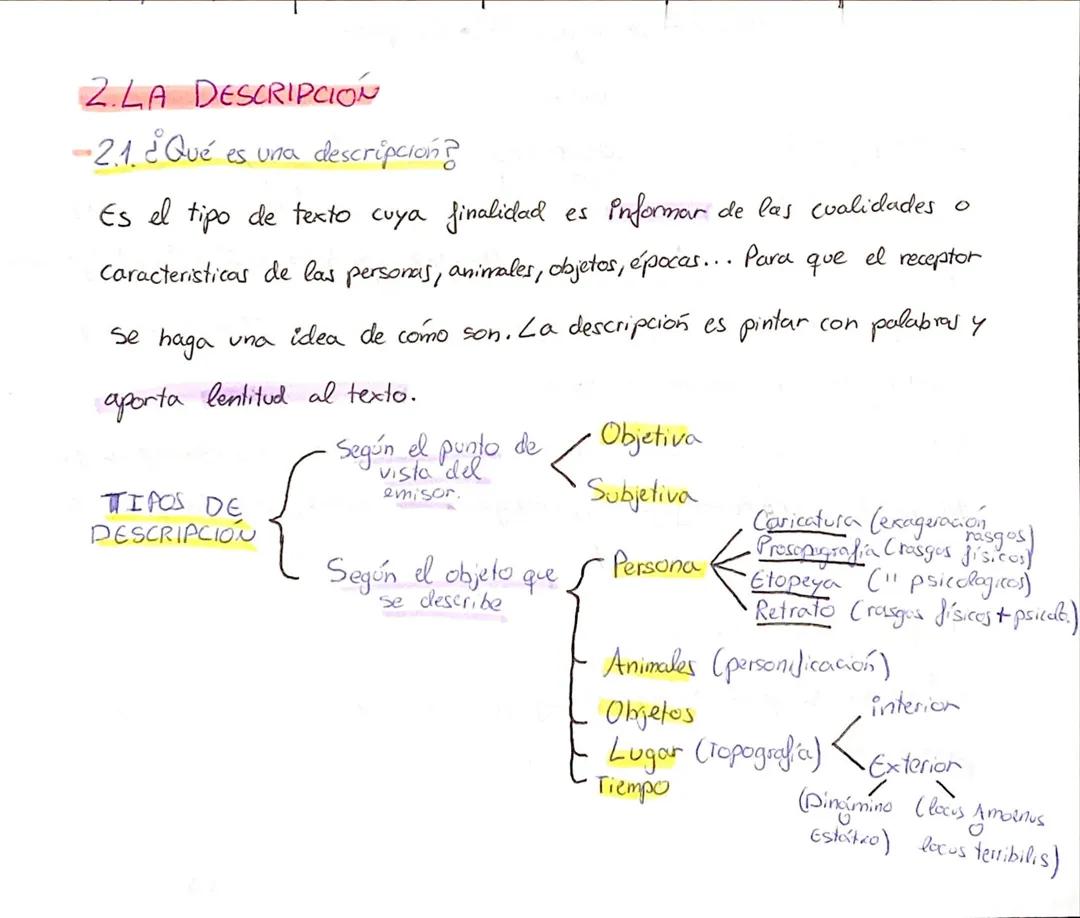 2. LA DESCRIPCIÓN
-2.1. ¿Qué es una descripción?
Es el tipo de texto cuya finalidad es informar de las cualidades o
características de las personas, animales, objetos, épocas... Para que el receptor
se haga una idea de cómo son. La descripción es pintar con palabras y
aporta lentitud al texto.
TIPOS DE
DESCRIPCIÓN
Según el punto de
vista del
emisor.
Objetiva
Subjetiva
Según el objeto que
se describe
Persona
Caricatura (exageración
rasgos)
Prosopografía (rasgos físicos)
Etopeya (" psicologicos)
Retrato (rasgos físicos + psicolo.)
Animales (personificación)
Objetos
Lugar (Topografía)
interior
Exterior
(Dinámino
o
Estático)
(locus Amoenus
o
locus terribilis)
Tiempo